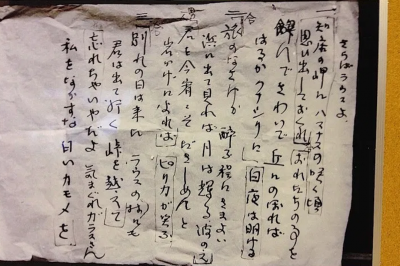 さらばラウスよ
一 知床の岬に ハマナスの咲く頃
思い出しておくれ おれたちの事を
飲んでさわいで 丘にのぼれば
はるかクナシリに 白夜は明ける
二 旅のなさけか 酔う程にさまよい
浜に出て見れば 月は輝る波の え
男 君を今宵こそ だきしめんと
岩かげによれば ピリカが笑う
三 別れの日は来た ラウスの村にも
君は出て行く 峠を越えて
忘れちゃいやだよ 気まぐれカラスさん
私をなかすな 白いカモメを